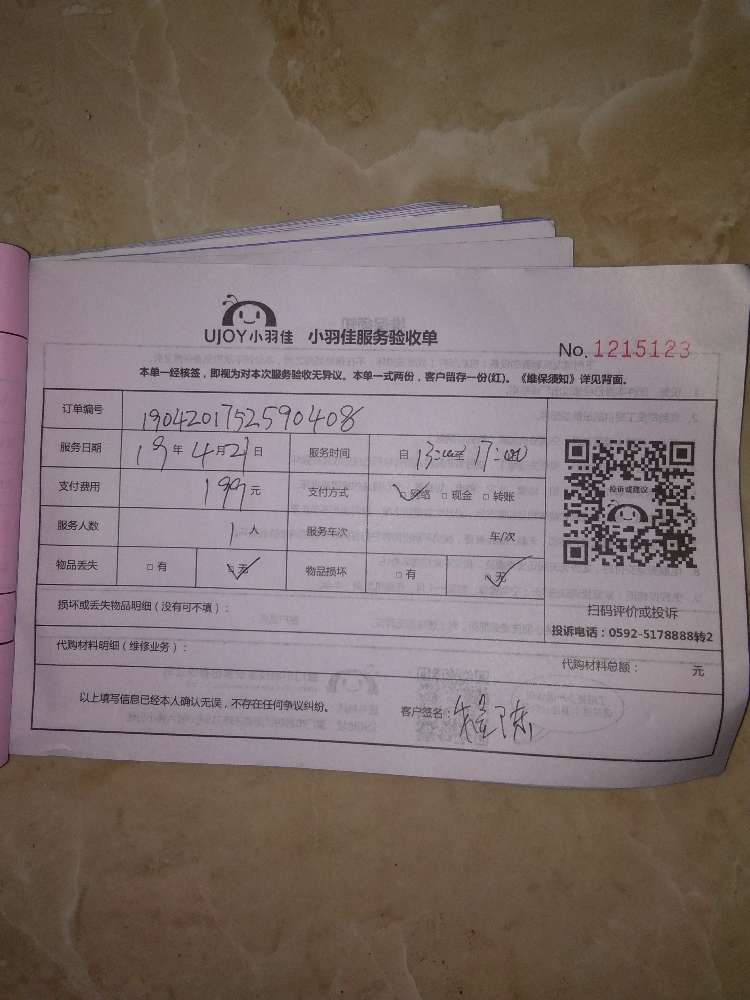 UJOY小羽佳 小羽佳服务验收单
No. 1215123
本单一经核签，即视为对本次服务验收无异议。本单一式两份，客户留存一份(红)。《维保须知》详见背面。
订单编号 19042017525590408
服务日期 19年4月21日 服务时间 自13:00至17:00
支付费用 199元 支付方式 □网络 □现金 □转账
服务人数 1人 服务车次 车/次
物品丢失 □有 □无 物品损坏 □有 □无
投诉或建议
扫码评价或投诉
投诉电话：0592-5178888转2
损坏或丢失物品明细（没有可不填）：
代购材料明细（维修业务）： 代购材料总额： 元
以上填写信息已经本人确认无误，不存在任何争议纠纷。 客户签名：